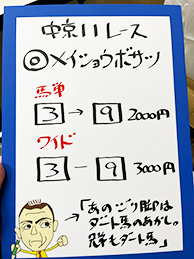 中京11レース
◎メイショウボサツ
馬単
3→9 2000円
ワイド
3－9 3000円
→「あのゾリ脚は
ダート馬のあかし。
兄弟もダート馬」